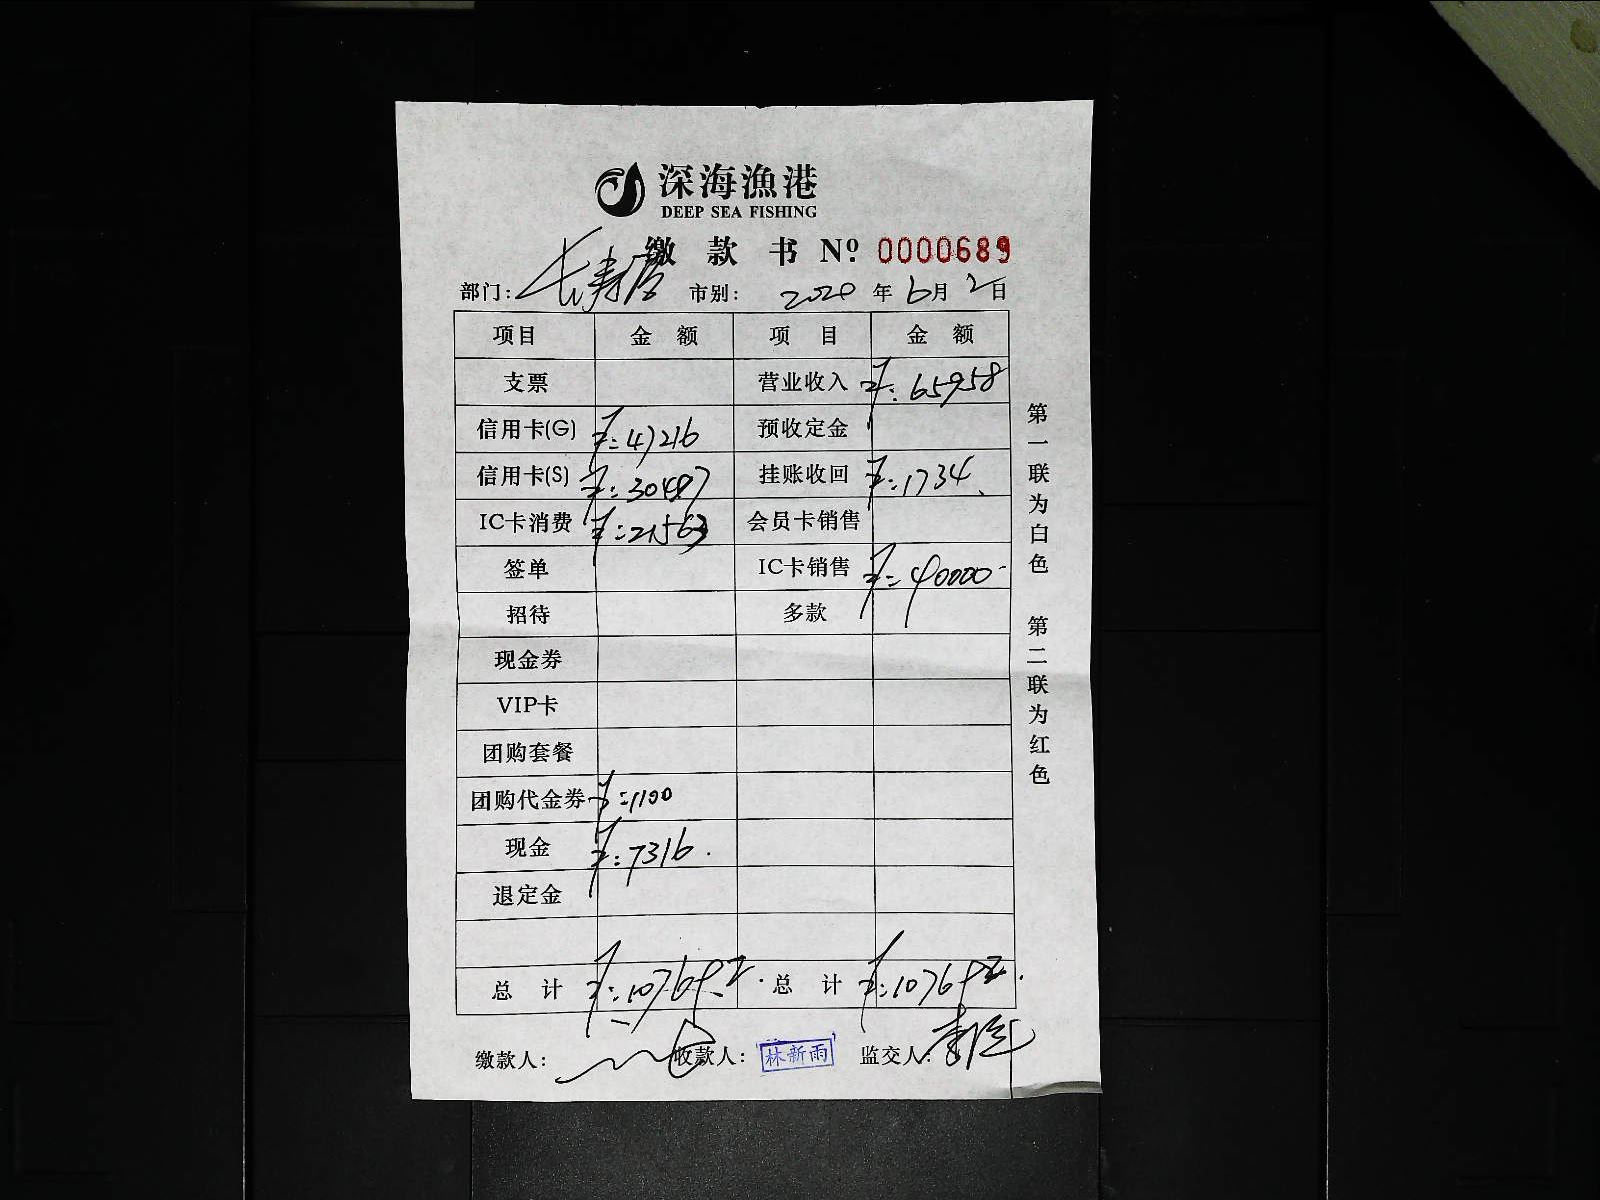 深海漁港
DEEP SEA FISHING
缴 款 书 Nº 0000689
部门: 长寿店 市别: 2020 年 6月 2日
项目 金 额 项 目 金 额
支票 营业收入 ¥:65958
信用卡(G) ¥:47216 预收定金
信用卡(S) ¥:30497 挂账收回 ¥:1734
IC卡消费 ¥:21563 会员卡销售
签单 IC卡销售 ¥:40000
招待 多款
现金券
VIP卡
团购套餐
团购代金券 ¥:1100
现金 ¥:7316
退定金
总 计 ¥:107692 总 计 ¥:107692
缴款人: 收款人: 林新雨 监交人:
第一联为白色 第二联为红色